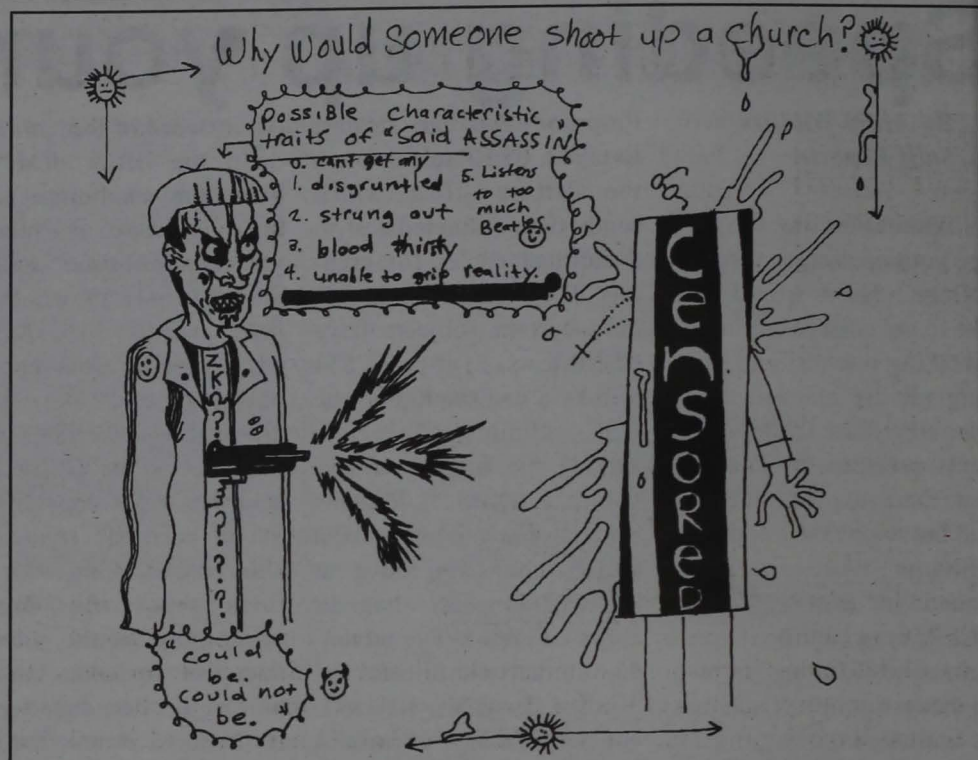 Why Would Someone shoot up a church?
possible characteristic
traits of "Said ASSASSIN"
0. cant get any
1. disgruntled
2. strung out
3. blood thirsty
4. unable to grip reality.
5. Listens
to too
much
Beatles.
CenSoReD
"could
be.
could not
be."